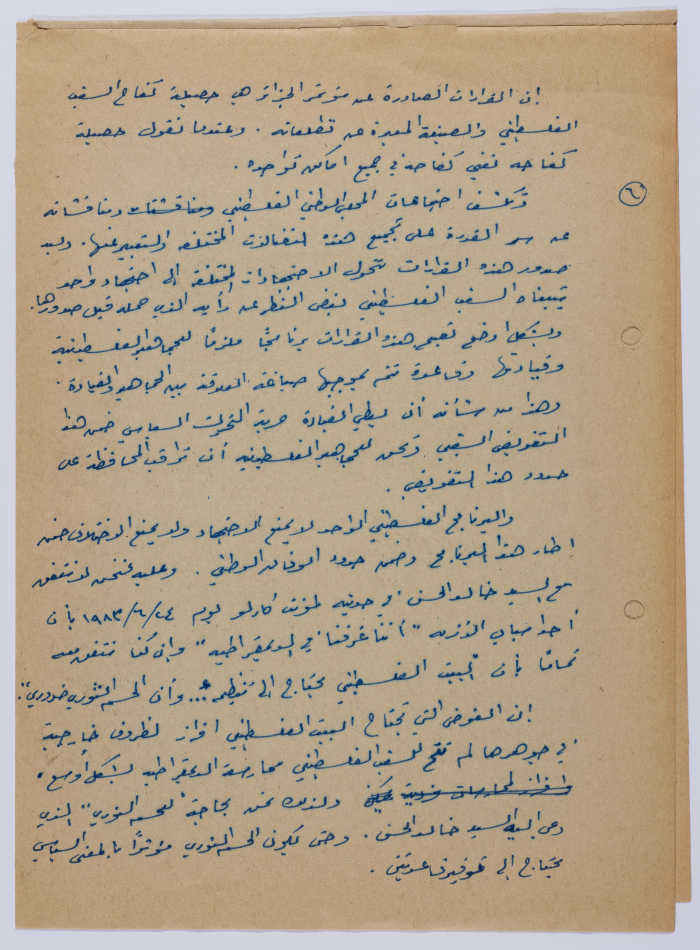 ان القرارات الصادرة عن مؤتمر الجزائر هي حصيلة كفاح الشعب
الفلسطيني والصيغة المعبرة عن تطلعاته . وعندما نقول حصيلة
كفاحه نعني كفاحه في جميع اماكن تواجده .
٦
وتكشف اجتماعات المجلس الوطني الفلسطيني ومناقشاته
عن سر القدرة على تجميع هذه النضالات المختلفة والتعبير عنها . وبعد
صدور هذه القرارات تتحول الاجتهادات المختلفة إلى اجتهاد واحد
يتبناه الشعب الفلسطيني بغض النظر عن رأيه الذي حمله قبل صدورها .
وبشكل اوضح تصبح هذه القرارات برنامجًا ملزمًا للجماهير الفلسطينية
وقيادتها وقاعدة تتم بموجبها صياغة العلاقة بين الجماهير والقيادة .
وهذا من شأنه أن يعطي القيادة حرية التحرك السياسي ضمن هذا
التفويض الشعبي ويحق للجماهير الفلسطينية أن تراقب المحافظة على
حدود هذا التفويض .
والبرنامج الفلسطيني الواحد لا يمنع الاجتهاد ولا يمنع الاختلاف ضمن
اطار هذا البرنامج وضمن حدود الوفاق الوطني . وعليه فنحن لا نتفق
مع السيد خالد الحسن في حديثه لمونت كارلو يوم ٢٤/٦/١٩٨٣ بأن
أحد اسباب الأزمة "أننا غرقنا في الديمقراطية" وإن كنا نتفق معه
تمامًا بأن "البيت الفلسطيني يحتاج إلى تنظيم ... وأن الحسم الثوري ضروري".
إن الفوضى التي تجتاح البيت الفلسطيني افراز لظروف خارجية
في جوهرها لم تتح للشعب الفلسطيني ممارسة الديمقراطية بشكل أوسع .
ولذلك نحن بحاجة "للحسم الثوري" الذي
دعى إليه السيد خالد الحسن . وحتى يكون الحسم الثوري مؤثرًا بالمعنى السياسي
يحتاج إلى توفير قاعدتين .